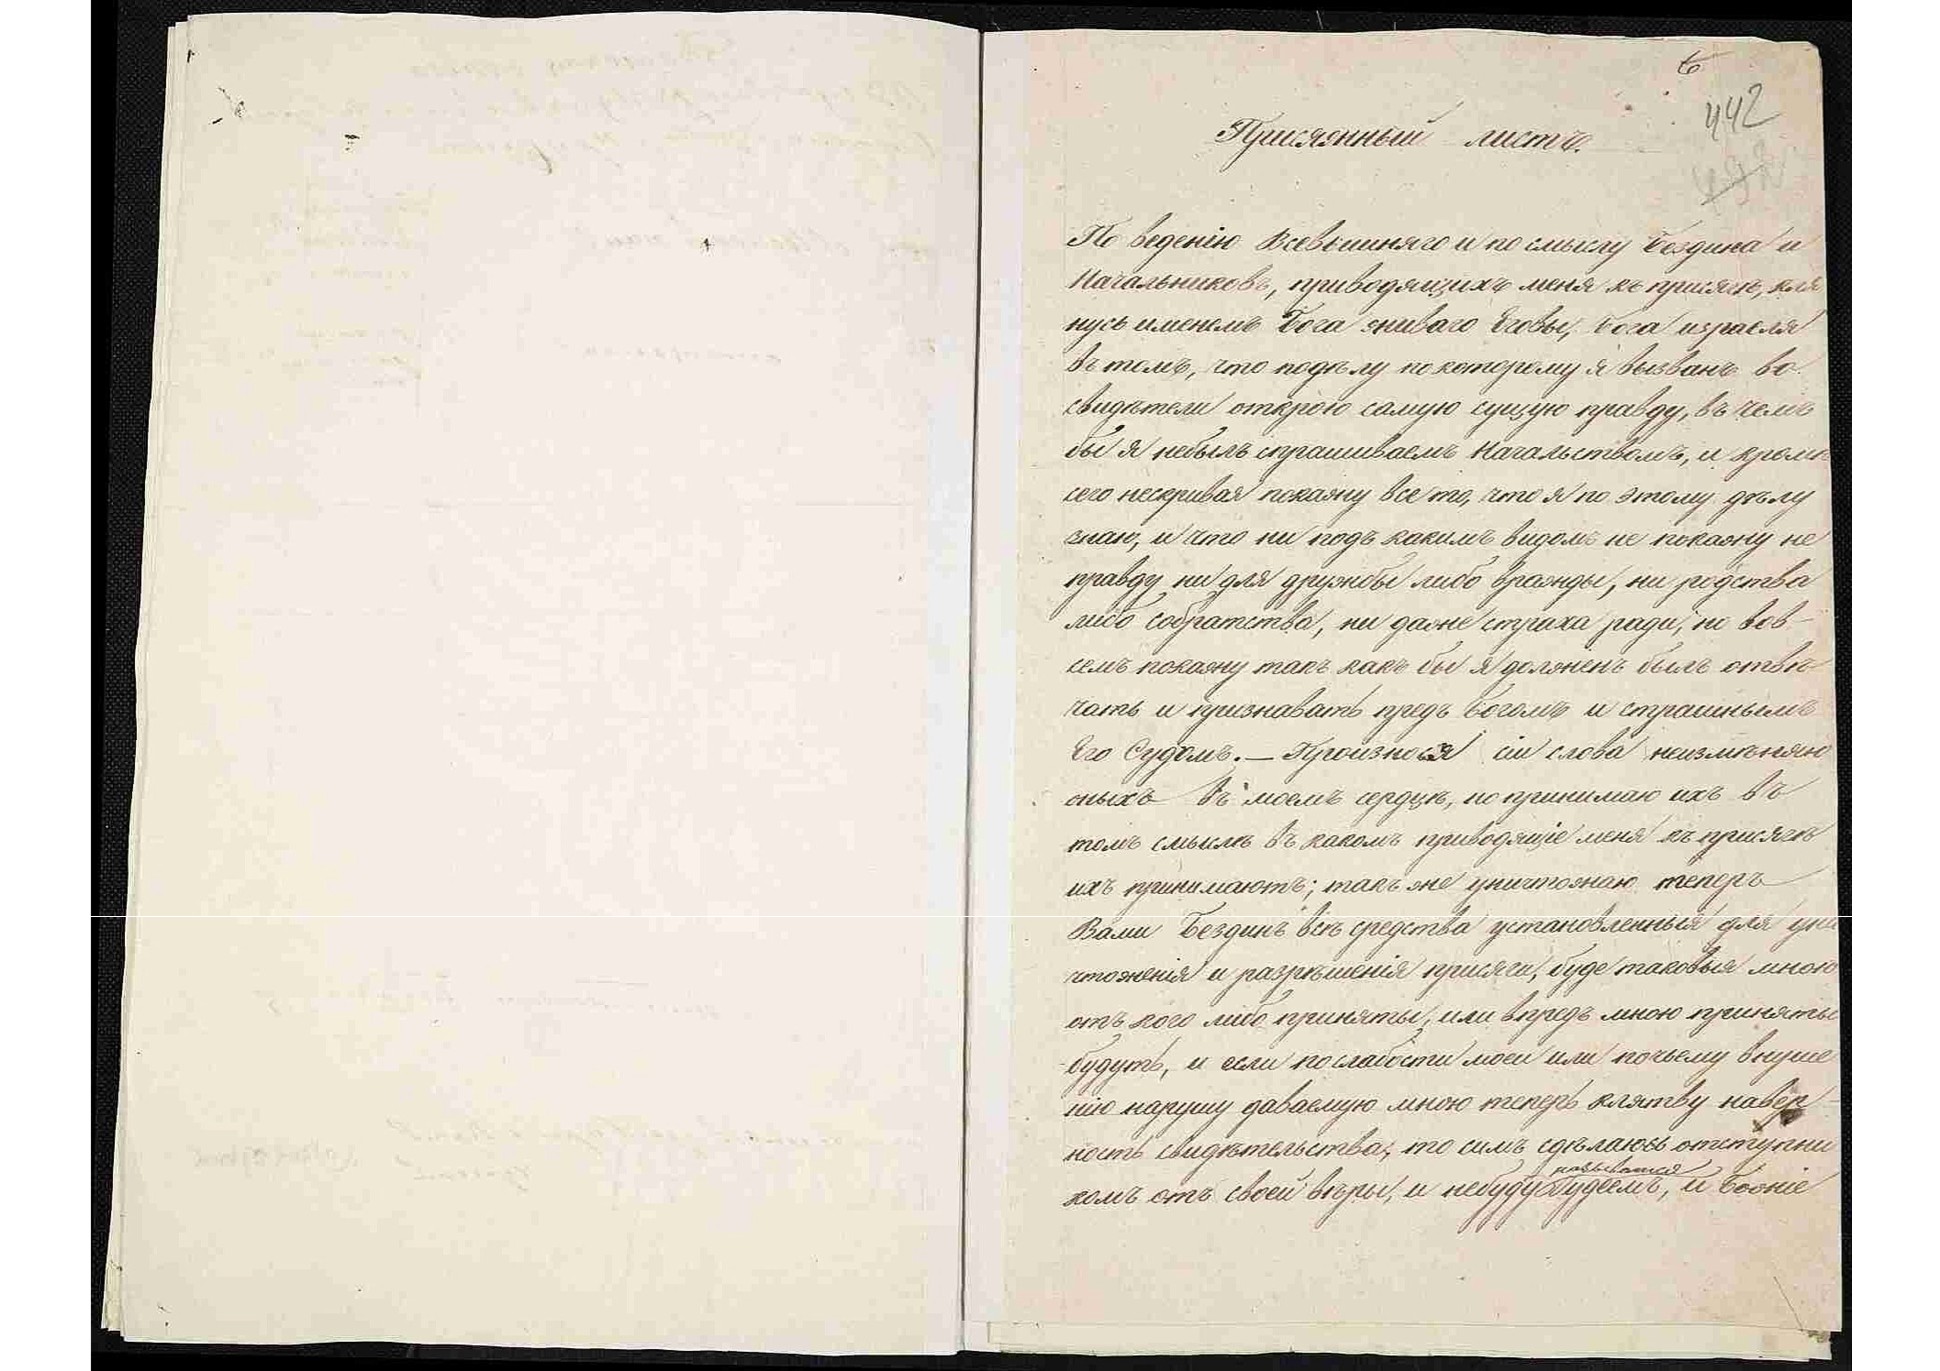 6
442
Присяжный листъ.
По веденію Всевышняго и по смыслу Бездина и
Начальниковъ, приводящихъ меня къ присягѣ, кля
нусь именемъ Бога живаго Еговы, Бога израеля
въ томъ, что подѣлу по которому я вызванъ во
свидѣтели открою самую сущую правду, въ чемъ
бы я небылъ спрашиваемъ Начальствомъ, и кромѣ
сего нескривая покажу все то, что я по этому дѣлу
знаю, и что ни подъ какимъ видомъ не покажу не
правду ни для дружобы либо вражды, ни родства
либо собратства, ни даже страха ради, но вов-
семъ покажу такъ какъ бы я долженъ былъ отвѣ
чать и признавать предъ Богомъ и страшнымъ
Его Судомъ. — Произнося сіи слова неизмѣняю
оныхъ въ моемъ сердцѣ, но принимаю ихъ въ
томъ смыслѣ въ какомъ приводящіе меня къ присягѣ
ихъ принимаютъ; такъ же уничтожаю теперъ
Вами Бездинъ всѣ средства установленныя для уни
чтоженія и разрѣшенія присяги, буде таковыя мною
отъ кого либо приняты, или впредъ мною приняты
будутъ, и если послабости моей или почьему внуше
нію нарушу даваемую мною теперь клятву навѣр-
ность свидѣтельства; то симъ сдѣлаюсь отступни
комъ отъ своей вѣры, и небуду называтся Іудеемъ, и Божіе